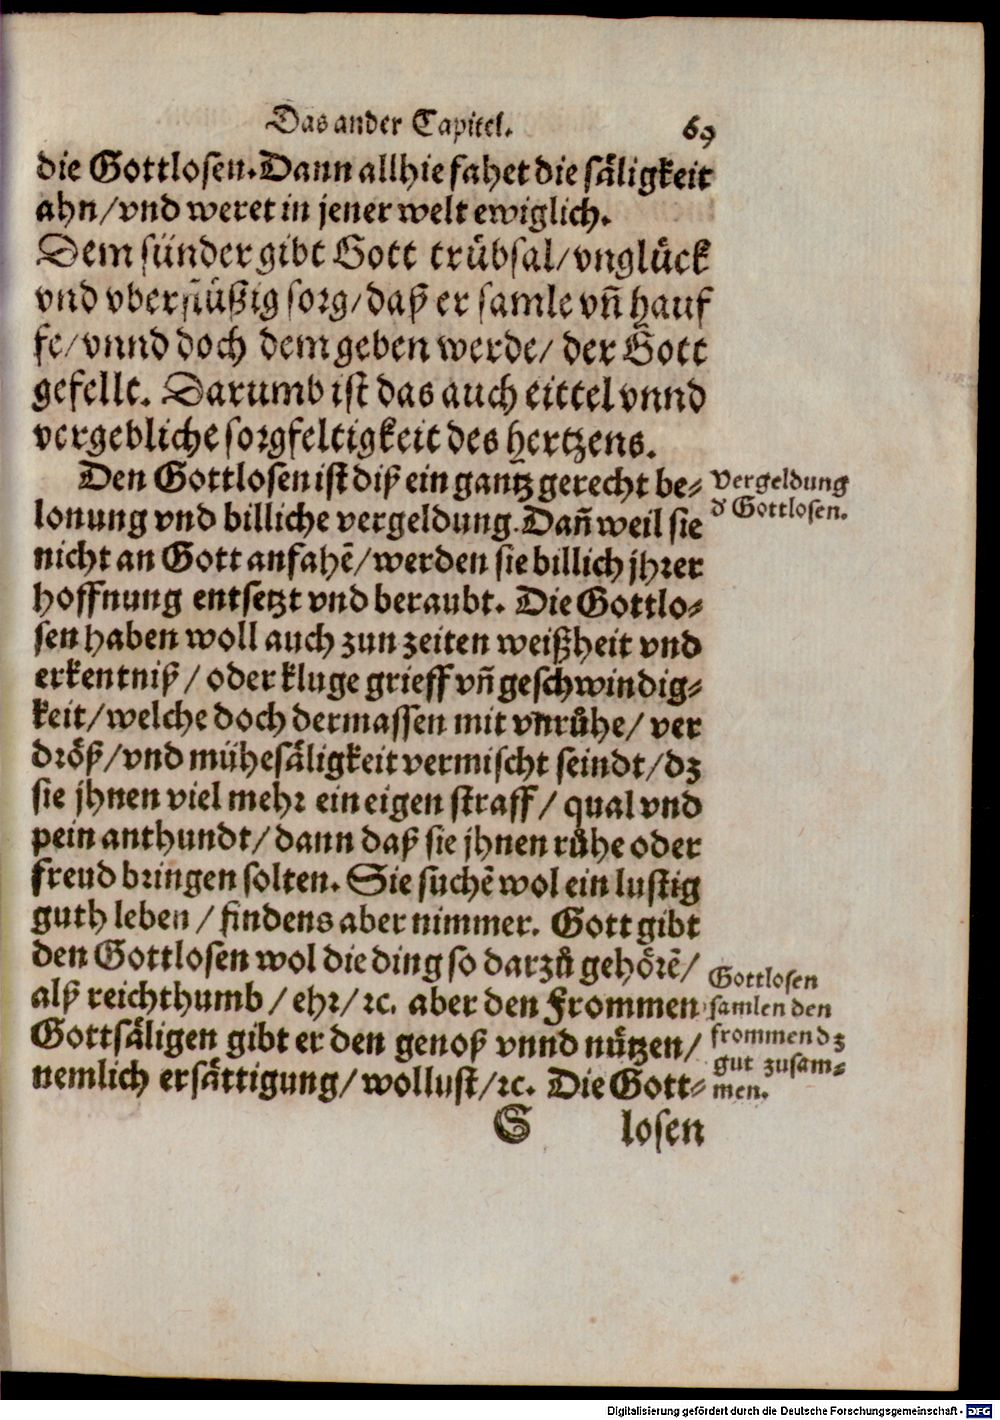 Das ander Capitel. 69
die Gottlosen. Dann allhie fahet die säligkeit
ahn/vnd weret in jener welt ewiglich.
Dem sünder gibt Gott trübsal/vnglück
vnd vberflüßig sorg/daß er samle vñ hauf
fe/vnnd doch dem geben werde/ der Gott
gefellt. Darumb ist das auch eittel vnnd
vergebliche sorgfeltigkeit des hertzens.
Den Gottlosen ist diß ein gantz gerecht be-
lonung vnd billiche vergeldung. Dañ weil sie
nicht an Gott anfahẽ/werden sie billich jhrer
hoffnung entsetzt vnd beraubt. Die Gottlo-
sen haben woll auch zun zeiten weißheit vnd
erkentniß / oder kluge grieff vñ geschwindig-
keit/welche doch dermassen mit vnrůhe/ ver
dröß/vnd mühesäligkeit vermischt seindt/dz
sie jhnen viel mehr ein eigen straff / qual vnd
pein anthundt/dann daß sie jhnen růhe oder
freud bringen solten. Sie suchẽ wol ein lustig
guth leben / findens aber nimmer. Gott gibt
den Gottlosen wol die ding so darzů gehörẽ/
alß reichthumb / ehr/ ꝛc. aber den Frommen
Gottsäligen gibt er den genoß vnnd nützen/
nemlich ersättigung/wollust/ꝛc. Die Gott-
S losen
Vergeldung
d' Gottlosen.
Gottlosen
samlen den
frommen dz
gut zusam-
men.
Digitalisierung gefördert durch die Deutsche Forschungsgemeinschaft - DFG